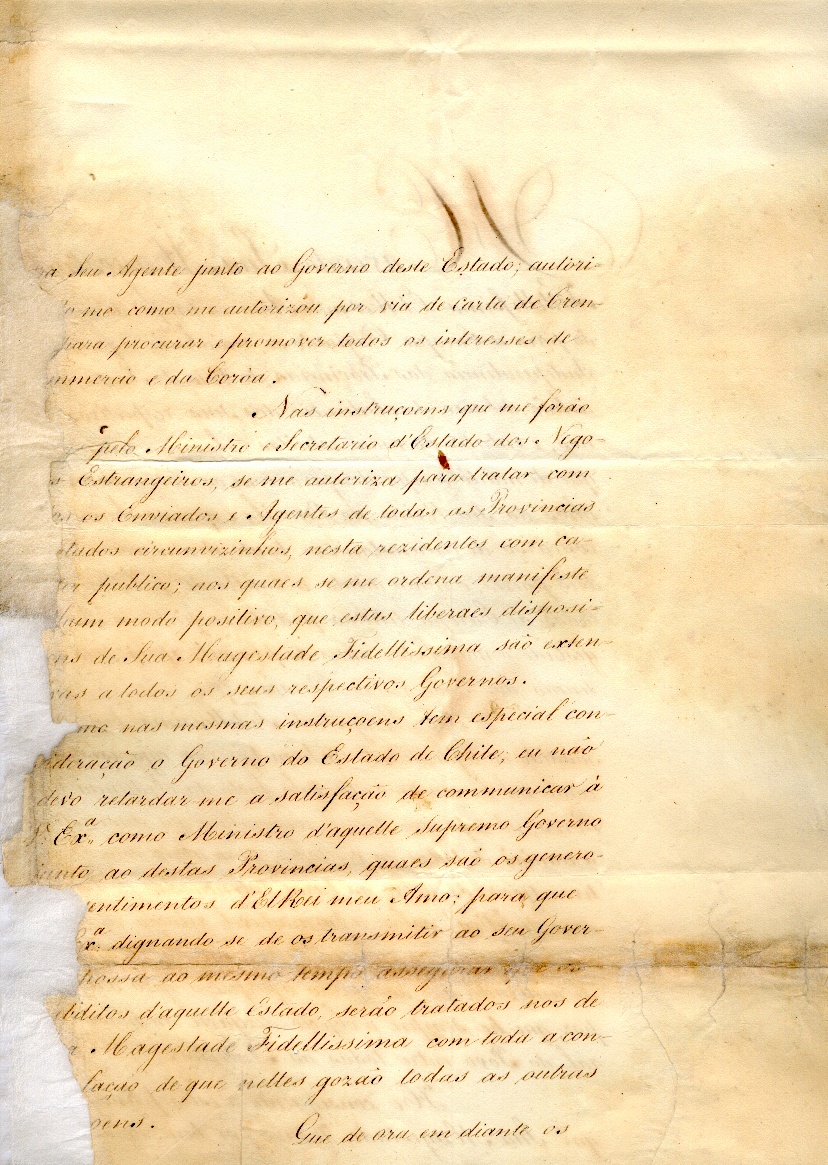 a Seu Agente junto ao Governo deste Estado; autori-
me como me autorizou por via de carta de Cren-
para procurar e promover todos os interesses de
mmercio e da Corôa.
Nas instruçoens que me forão
pelo Ministro e Secretario d'Estado dos Nego-
Estrangeiros, se me autoriza para tratar com
os os Enviados e Agentes de todas as Provincias
tados circunvizinhos, nesta rezidentes com ca-
er publico; aos quaes se me ordena manifeste
hum modo positivo, que estas liberaes disposi-
ns de Sua Magestade Fidellissima são exten-
vas a todos os seus respectivos Governos.
mo nas mesmas instruçoens tem especial con-
ideração o Governo do Estado de Chile; eu não
devo retardar me a satisfação de communicar à
V. Exª. como Ministro d'aquelle Supremo Governo
junto ao destas Provincias, quaes são os genero-
entimentos d'ElRei meu Amo; para que
Exª. dignando se de os transmitir ao seu Gover-
possa ao mesmo tempo assegurar que os
bditos d'aquelle Estado, serão tratados nos de
a Magestade Fidellissima com toda a con-
lação de que nelles gozão todas as outras
oens.
Que de ora em diante os